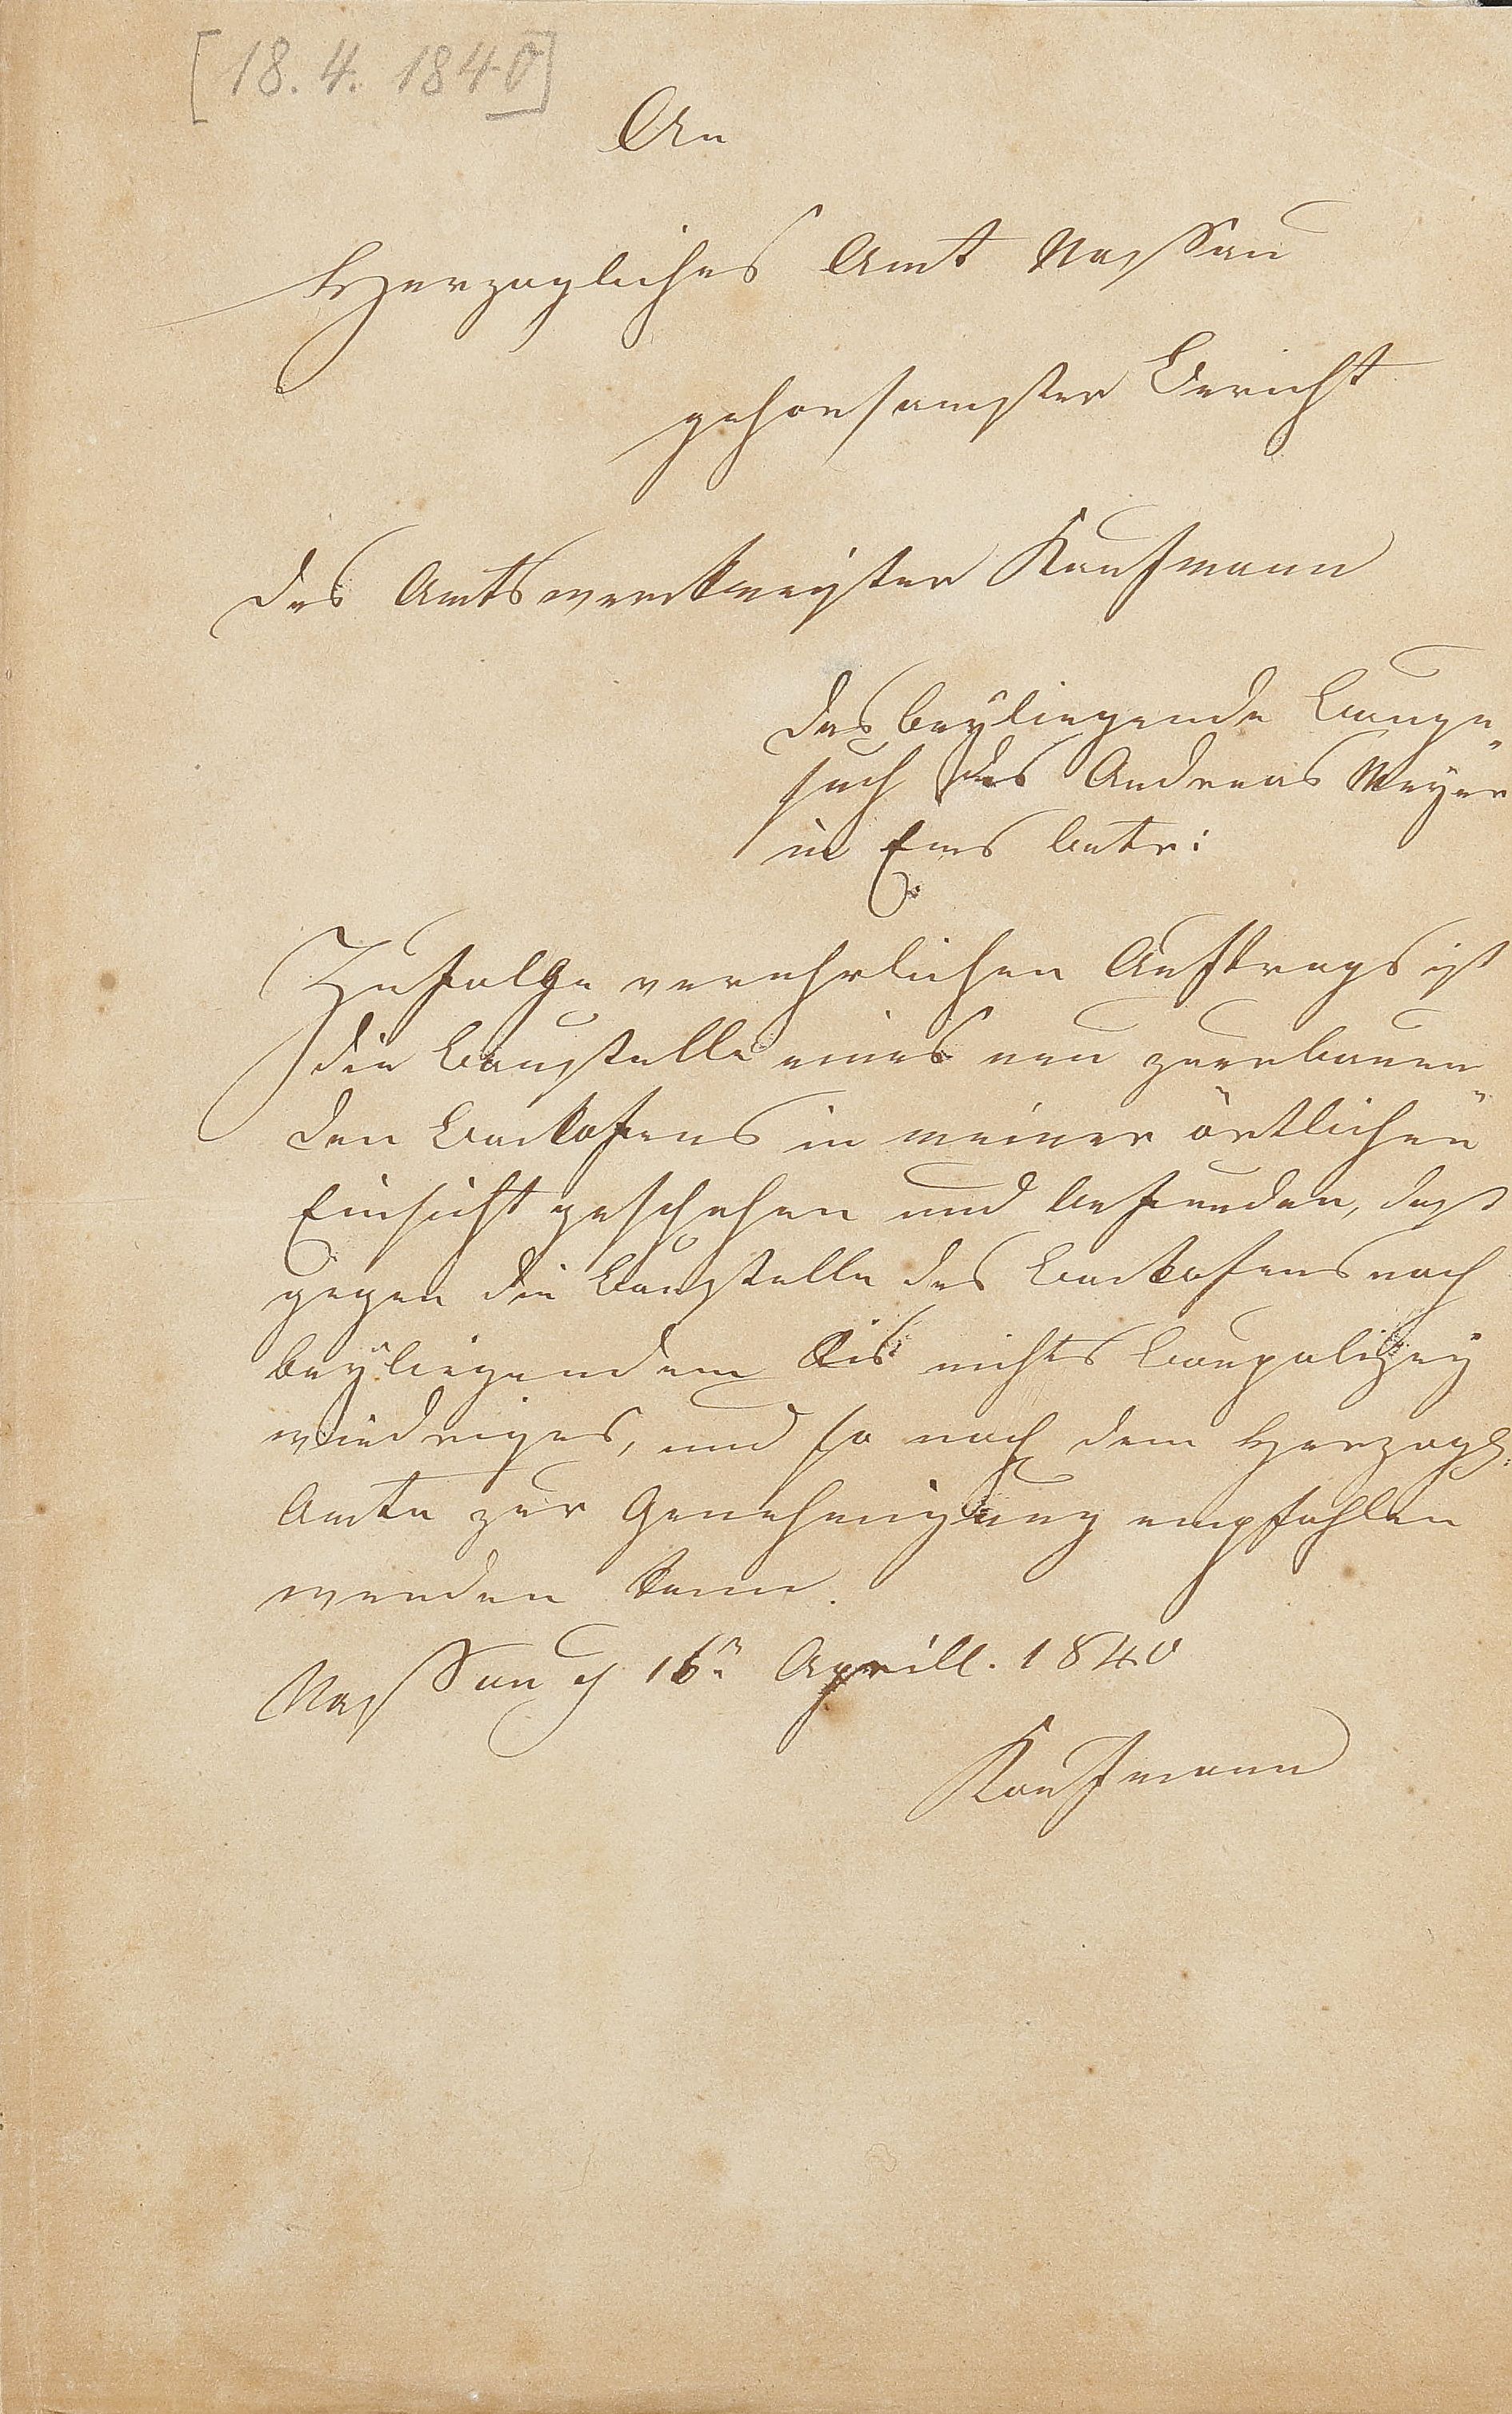 [18.4.1840]
An
Herzogliches Amt Nassau
gehorsamster Bericht
des Amtswerkmeister Kaufmann
das beÿliegende Bauge„
such des Andreas Meyer
in Ems betr:
Zufolge verehrlichen Auftrags ist
die Baustelle eines neu zuerbauen„
den Backofens in meiner örtlichen
Einsicht geschehen und befunden, dass
gegen die Baustelle des Backofens nach
beÿliegendem Ris nichts baupolizeÿ
wiedriges, und so nach dem Herzogl:
Amte zur Genehmigung empfohlen
werden kann.
Nassau d 16n Aprill. 1840
Kaufmann